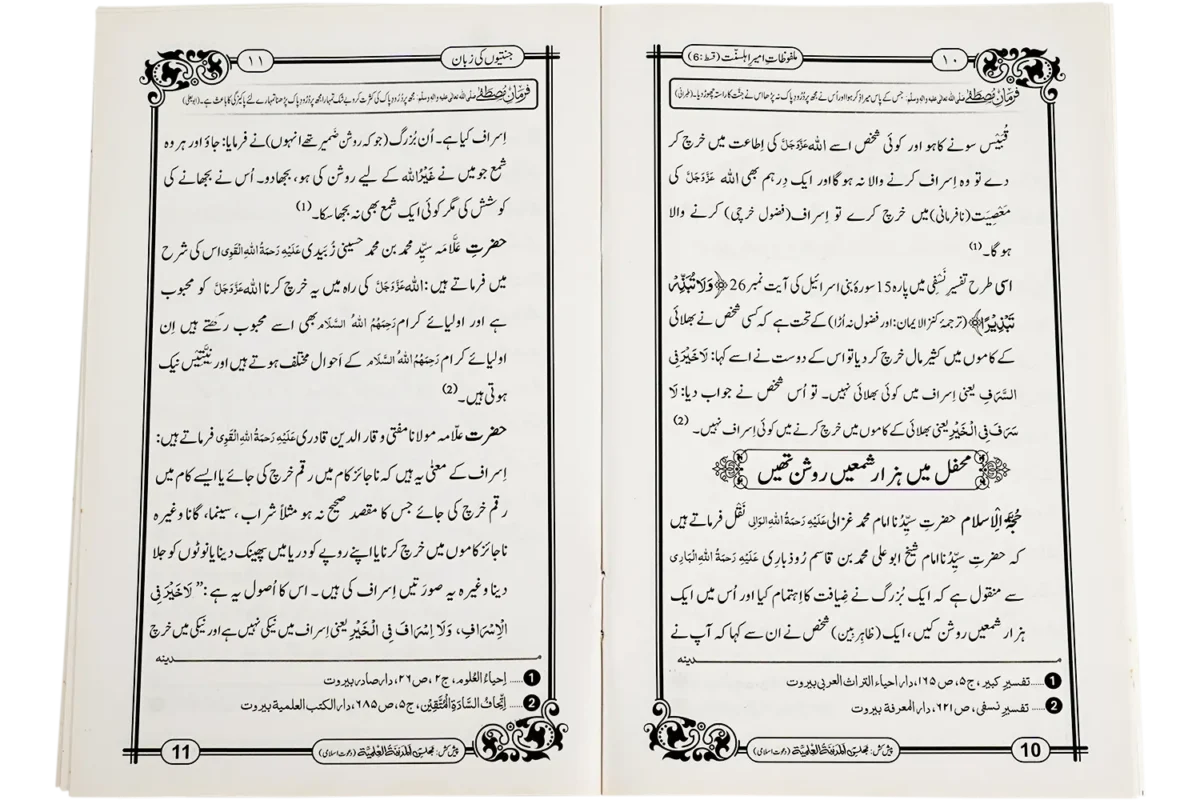 ۱۰
ملفوظاتِ امیرِ اہلسنّت (قسط:6)
فرمانِ مصطفےٰ صلی اللہ تعالٰی علیہ والہ وسلم: جس کے پاس میرا ذکر ہوا اور اُس نے مجھ پر دُرُودِ پاک نہ پڑھا اس نے جنّت کا راستہ چھوڑ دیا۔ (طبرانی)
قُبَیس سونے کا ہو اور کوئی شخص اسے اللہ عَزَّوَجَلَّ کی اِطاعت میں خرچ کر
دے تو وہ اِسراف کرنے والا نہ ہو گا اور ایک دِرہم بھی اللہ عَزَّوَجَلَّ کی
مَعْصِیَت (نافرمانی) میں خرچ کرے تو اِسراف (فضول خرچی) کرنے والا
ہو گا۔(1)
اسی طرح تفسیرِ نَسْفِی میں پارہ 15 سورۂ بنی اسرائیل کی آیت نمبر 26 ﴿وَلَا تُبَذِّرْ
تَبْذِیْرًا﴾ (ترجمۂ کنز الایمان: اور فضول نہ اُڑا) کے تحت ہے کہ کسی شخص نے بھلائی
کے کاموں میں کثیر مال خرچ کر دیا تو اس کے دوست نے اسے کہا: لَا خَیْرَ فِی
السَّرَفِ یعنی اِسراف میں کوئی بھلائی نہیں۔ تو اُس شخص نے جواب دیا: لَا
سَرَفَ فِی الْخَیْرِ یعنی بھلائی کے کاموں میں خرچ کرنے میں کوئی اِسراف نہیں۔(2)
محفل میں ہزار شمعیں روشن تھیں
حُجَّۃُ الْاِسلام حضرتِ سیِّدُنا امام محمد غزالی عَلَیْہِ رَحْمَۃُ اللہِ الْوَالِی نَقْل فرماتے ہیں
کہ حضرتِ سیِّدُنا امام شیخ ابو علی محمد بن قاسم رُوذباری عَلَیْہِ رَحْمَۃُ اللہِ الْبَارِی
سے منقول ہے کہ ایک بُزرگ نے ضِیافت کا اِہتمام کیا اور اُس میں ایک
ہزار شمعیں روشن کیں، ایک (ظاہر بین) شخص نے ان سے کہا کہ آپ نے
مدینہ
1 ..... تفسیرِ کبیر، ج۵، ص۱۶۵، دار احیاء التراث العربی بیروت
2 ..... تفسیرِ نسفی، ص۶۲۱، دار المعرفۃ بیروت
پیش کش: مجلس المدینۃ العلمیۃ (دعوتِ اسلامی)
10
جنتیوں کی زبان
۱۱
فرمانِ مصطفےٰ صلی اللہ تعالٰی علیہ والہ وسلم: مجھ پر دُرُودِ پاک کی کثرت کرو بے شک تمہارا مجھ پر دُرُودِ پاک پڑھنا تمہارے لئے پاکیزگی کا باعث ہے۔ (ابو یعلی)
اِسراف کیا ہے۔ اُن بُزرگ (جو کہ روشن ضمیر تھے انہوں) نے فرمایا: جاؤ اور ہر وہ
شمع جو میں نے غَیْرُ اللہ کے لیے روشن کی ہو، بجھا دو۔ اُس نے بجھانے کی
کوشش کی مگر کوئی ایک شمع بھی نہ بجھا سکا۔(1)
حضرتِ علَّامہ سیِّد محمد بن محمد حسینی زُبَیدی عَلَیْہِ رَحْمَۃُ اللہِ الْقَوِی اس کی شرح
میں فرماتے ہیں: اللہ عَزَّوَجَلَّ کی راہ میں یہ خرچ کرنا اللہ عَزَّوَجَلَّ کو محبوب
ہے اور اولیائے کرام رَحِمَہُمُ اللہُ السَّلَام بھی اسے محبوب رکھتے ہیں اِن
اولیائے کرام رَحِمَہُمُ اللہُ السَّلَام کے اَحوال مختلف ہوتے ہیں اور نیَّتیں نیک
ہوتی ہیں۔(2)
حضرت علّامہ مولانا مفتی وقار الدین قادری عَلَیْہِ رَحْمَۃُ اللہِ الْقَوِی فرماتے ہیں:
اِسراف کے معنٰی یہ ہیں کہ ناجائز کام میں رقم خرچ کی جائے یا ایسے کام میں
رقم خرچ کی جائے جس کا مقصد صحیح نہ ہو مثلاً شراب، سینما، گانا وغیرہ
ناجائز کاموں میں خرچ کرنا یا اپنے روپے کو دریا میں پھینک دینا یا نوٹوں کو جلا
دینا وغیرہ یہ صورَتیں اِسراف کی ہیں۔ اس کا اُصول یہ ہے: ”لَا خَیْرَ فِی
الْاِسْرَافِ، وَلَا اِسْرَافَ فِی الْخَیْرِ یعنی اِسراف میں نیکی نہیں ہے اور نیکی میں خرچ
مدینہ
1 ..... اِحیاءُ العُلوم، ج۲، ص۲۶، دار صادر بیروت
2 ..... اِتِّحَافُ السَّادَۃِ الْمُتَّقِیْن، ج۵، ص۶۸۵، دار الکتب العلمیۃ بیروت
پیش کش: مجلس المدینۃ العلمیۃ (دعوتِ اسلامی)
11